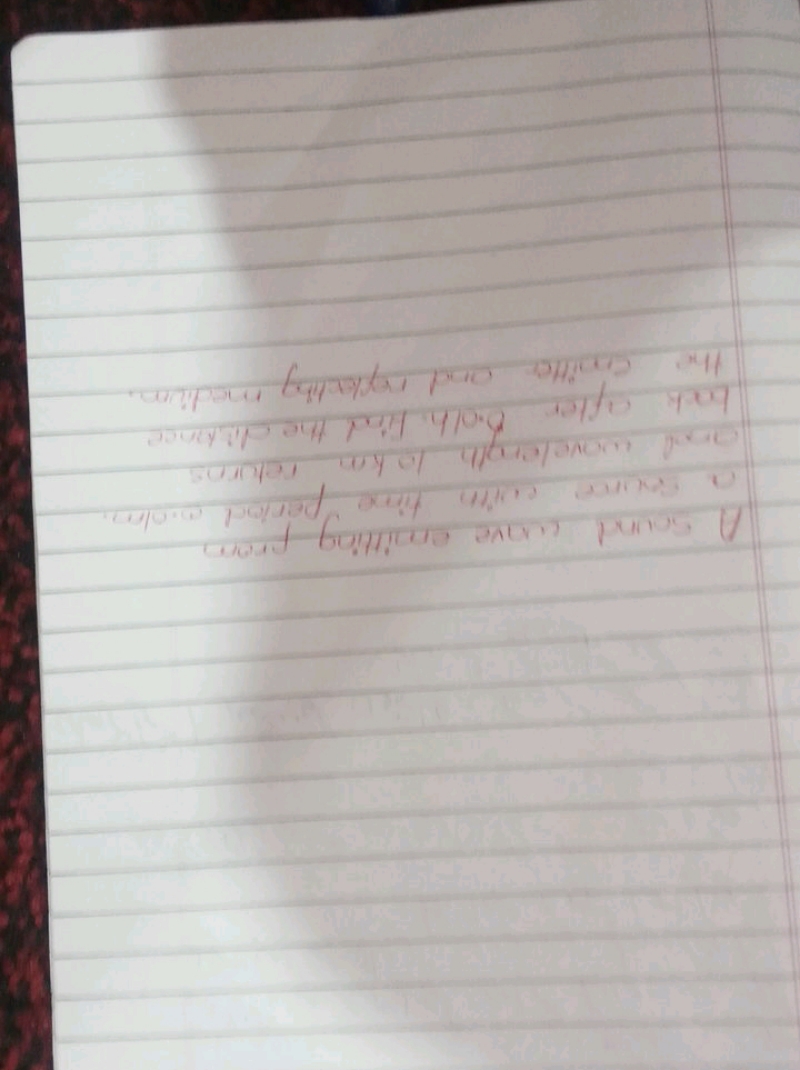 A sound wave emitting from
a source with time period
and wavelength 10 km returns
back after find the distance
the emitter and reflecting medium.